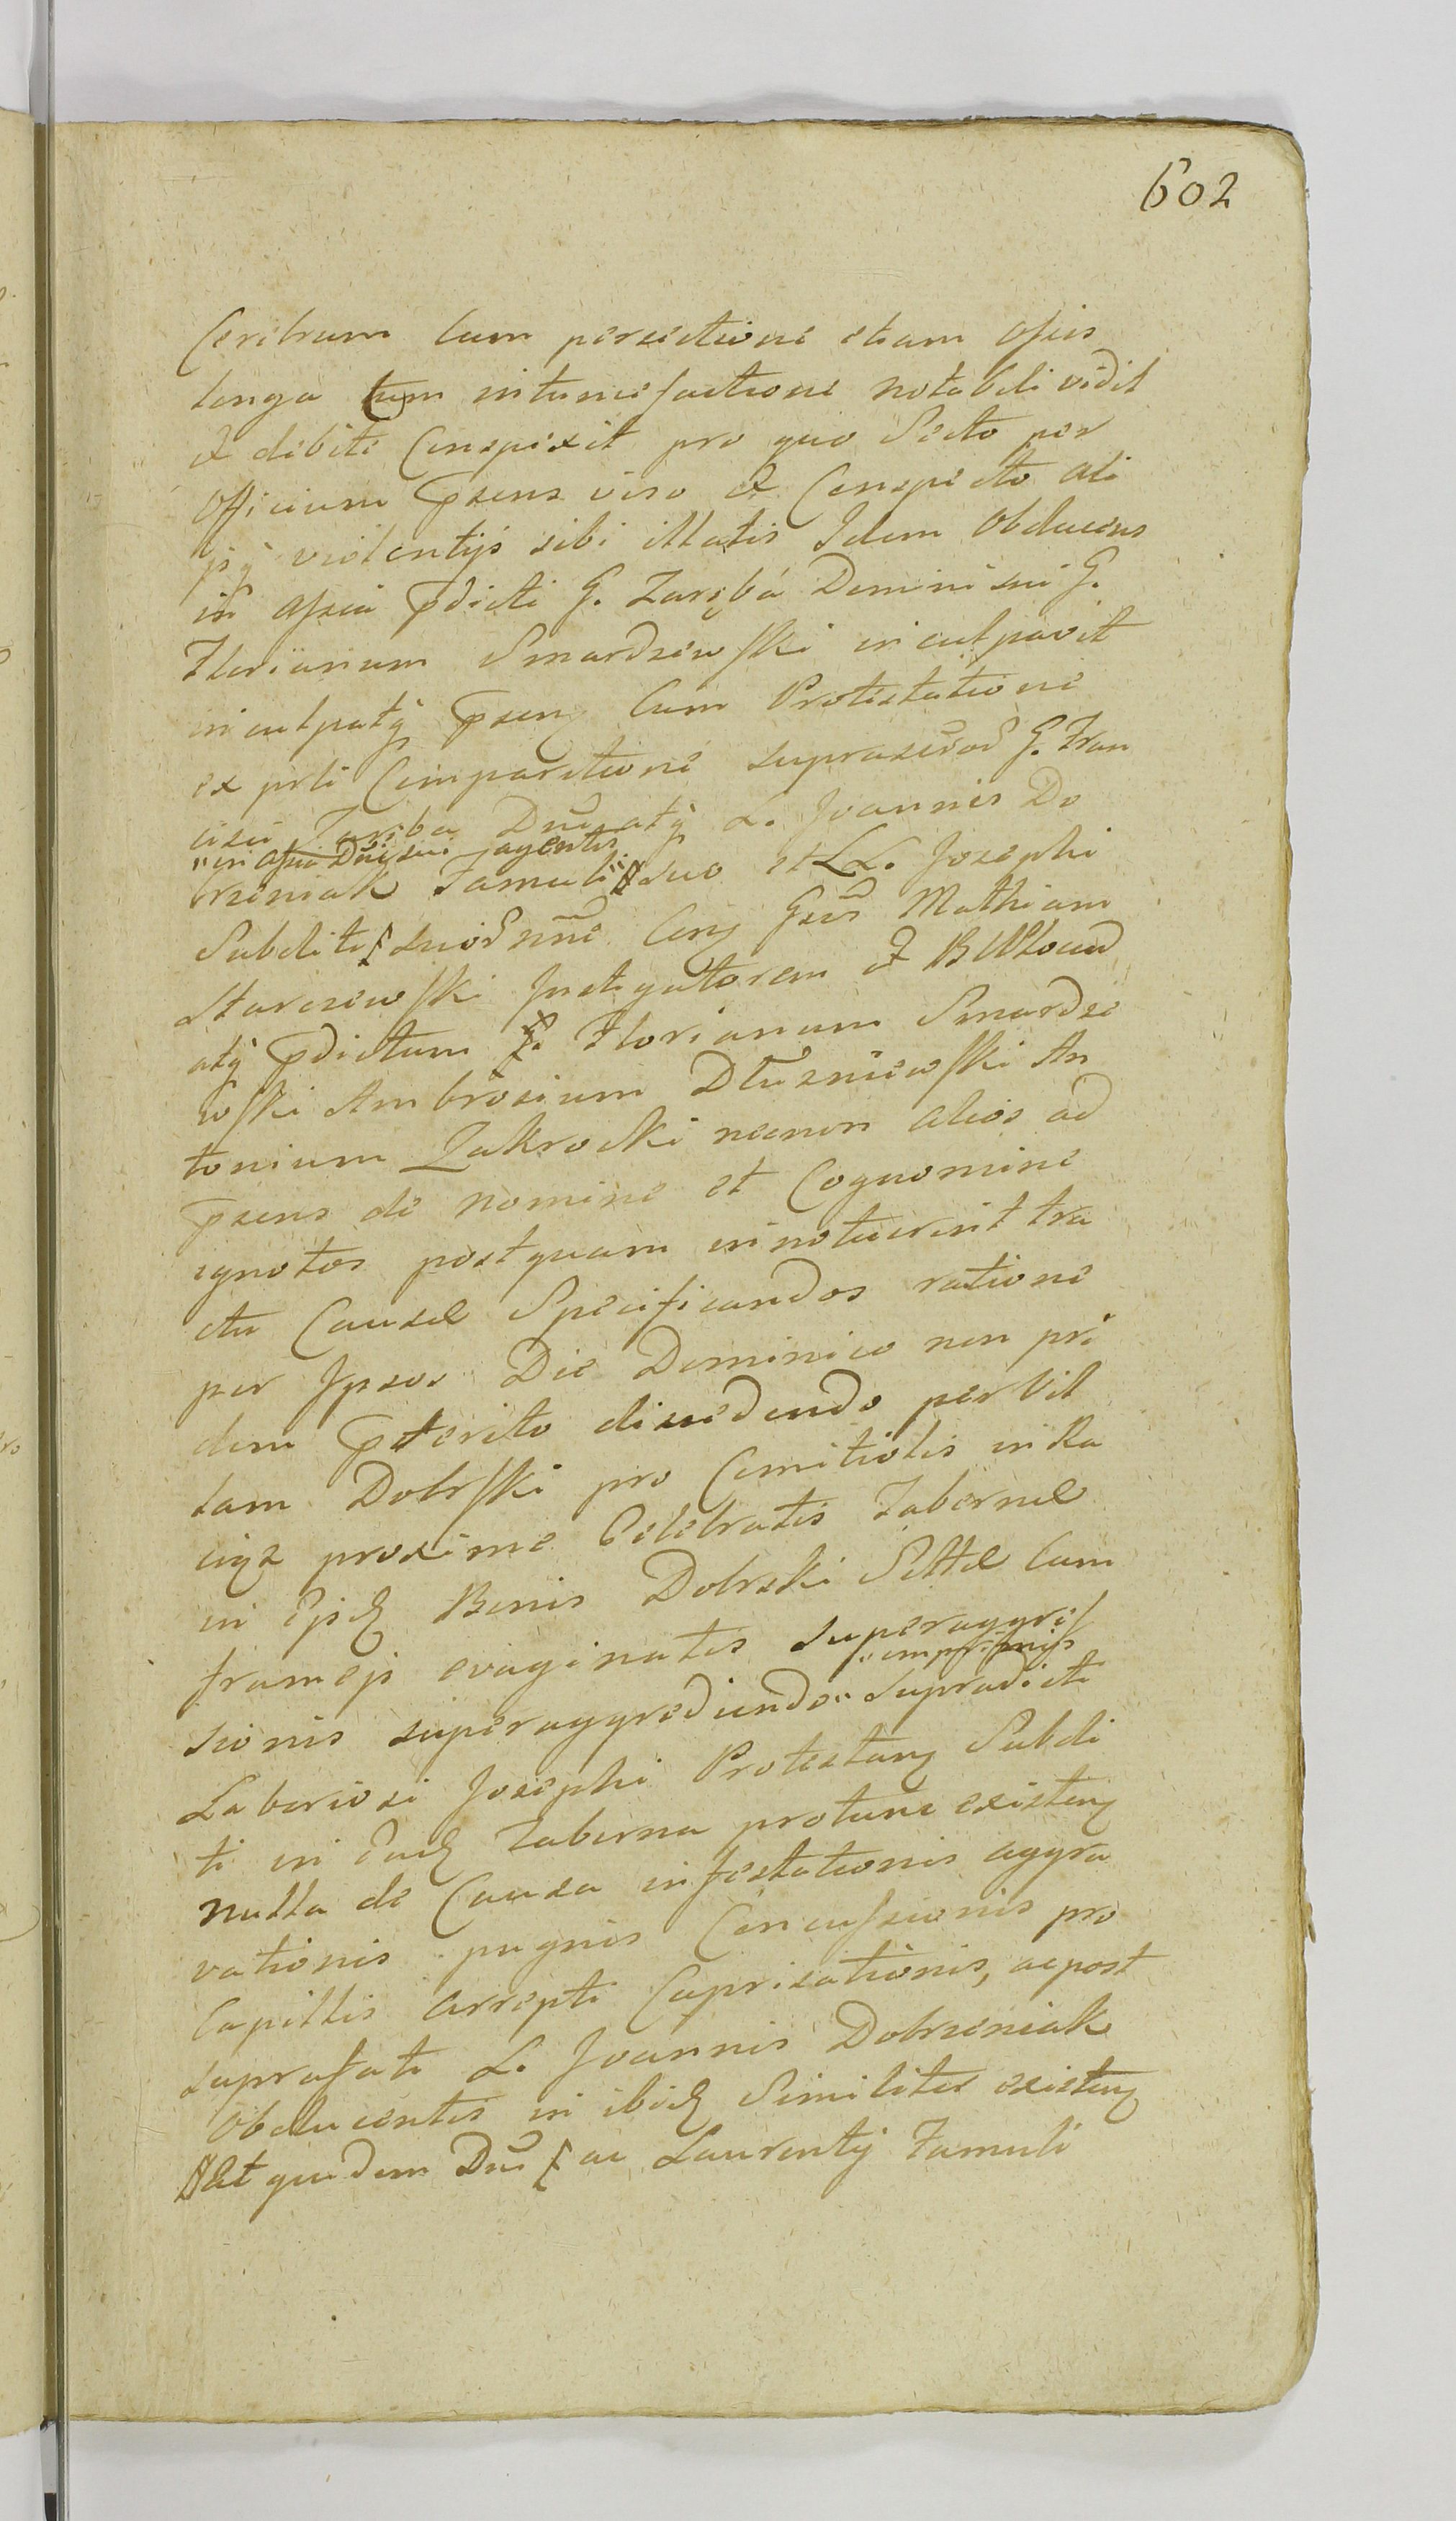 602
Cerebrum cum persectione etiam ossis
longa cum intumefactione notabili vidit
et debite Conspexit pro quo Secto per
Officium pñsens viso et Conspecto ali
jsq violentijs sibi illatis Idem Obducens
in assia pdicti G. Zaręba Domini sui G.
Florianum Smardzewski inculpavit
inculpatq pñsens Cum Protestatione
ex prti Comparitione suprascr G. Fran
cisci Zaręba Dni atq L. Joannis Do
"in assia Dni sui agentis
brzeniak Famuli suo et LL. Josephi
Subditi suor nne Cong Gsum Mathiam
Starczewski Instigatorem et
atq pdictum G. Florianum Smardze
wski Ambrosium Dłuzniewski An
tonium Zakrocki necnon alios ad
psens de nomine et Cognomine
ignotos postquam innotuerint tra
ctu Causæ Specificandos ratione
per Ipsos Die Dominico non pri
dem pterito discedendo per Vil
lam Dobrski pro Comitiolis in Ra
ciąz proxime Celebratis Tabernæ
in Ejsd Bonis Dobrski Sittæ Cum
frameis evaginatis superaggres
"imprimis
sionis superaggrediendo" supradicti
Laboriosi Josephi Protestang Subdi
ti in Ead Taberna protunc existeng
nulla de Causa infestationis aggra
vationis pugnis Concussionis pro
Capillis arrepti Caprisationis, ac post
suprafati L. Joannis Dobrzeniak
Obducentis in ibid Similiter existeng
at quidem Dni ac Laurentij Famuli